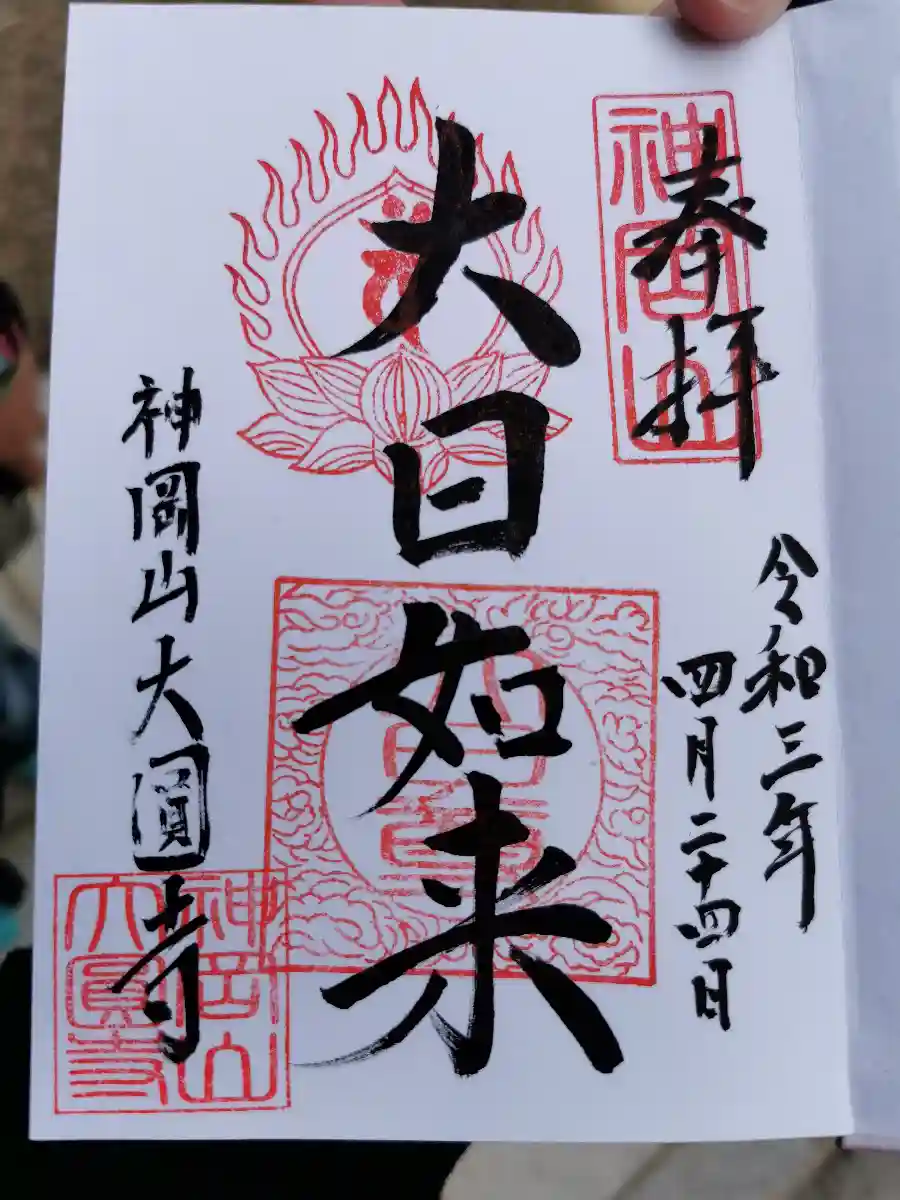 奉拝
神岡山
令和三年
四月二十四日
大日如来
神岡山大圓寺
神岡山
大圓寺